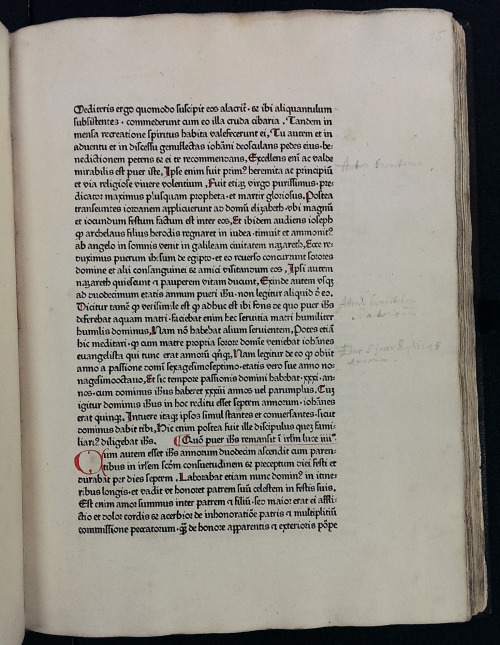 Mediteris ergo quomodo suscipit eos alacrit̃ · ⁊ ibi aliquantulum
subsistentes · commederunt cum eo illa cruda cibaria . Tandem in
mensa recreatione spiritus habita valefecerunt ei, Tu autem et in
aduentu et in discessu genuflectas iohāni deosculans pedes eius · be-
nedictionem petens ⁊ ei te recommendans, Excellens enī ac valde
mirabilis est puer iste, Ipse enim fuit prim⁹ heremita ac principiū
et via religiose viuere volentium, Fuit etiaƺ virgo purissimus · pre-
dicator maximus plusquam propheta · et martir gloriosus, Postea
transeuntes iordanem applicuerunt ad domū elizabeth · vbi magnū
et iocundum festum factum est inter eos, Et ibidem audiens ioseph
ꝙ archelaus filius herodis regnaret in iudea · timuit et ammonit⁹
ab angelo in somnis venit in galileam ciuitatem nazareth, Ecce re-
duximus puerum ihesum de egipto · et eo reuerso concurrunt sorores
domine et alii consanguinei ⁊ amici visitandum eos , Ipsi autem
nazareth quiescunt et pauperem vitam ducunt, Exinde autem vsqƺ
ad duodecimum etatis annum pueri iħu · non legitur aliquid de eo,
Dicitur tamē ꝙ verisimile est ꝙ adhuc est ibi fons de quo puer iħs
deferebat aquam matri · faciebat enim hec seruitia matri humiliter
humilis dominus, Nam nō habebat alium seruientem, Potes etiā
hic meditari · ꝙ cum matre propria sorore domine veniebat iohānes
euangelista qui tunc erat annorū qnqƺ, Nam legitur de eo ꝙ obiit
anno a passione domī sexagesimoseptimo · etatis vero sue anno no-
nagesimooctauo, Et sic tempore passionis domini habebat · xxxi · an-
nos · cum dominus iħus haberet xxxiii annos vel parumplus, Cum
igitur dominus iħus in hoc reditu esset septem annorum · iohannes
erat quinqƺ, Intuere itaqƺ ipsos simul stantes et conuersantes · sicut
dominus dabit tibi, Hic enim postea fuit ille discipulus queƺ fami-
liari⁹ diligebat iħs. Quō puer iħs remansit ī irłm luce iiii°
Cum autem esset iħs annorum duodecim ascendit cum paren-
tibus in irłem scđm consuetudinem ⁊ preceptum diei festi et
durabat per dies septem, Laborabat etiam nunc domin⁹ in itine-
ribus longis · et vadit et honoret patrem suū celestem in festis suis,
Est enim amor summus inter patrem et filiū · sed maior erat ei affli-
ctio et dolor cordis ⁊ acerbior de inhonoratiōe patris et multiplitiū
commissione peccatorum · quā de honore apparentis et exterioris pōpe